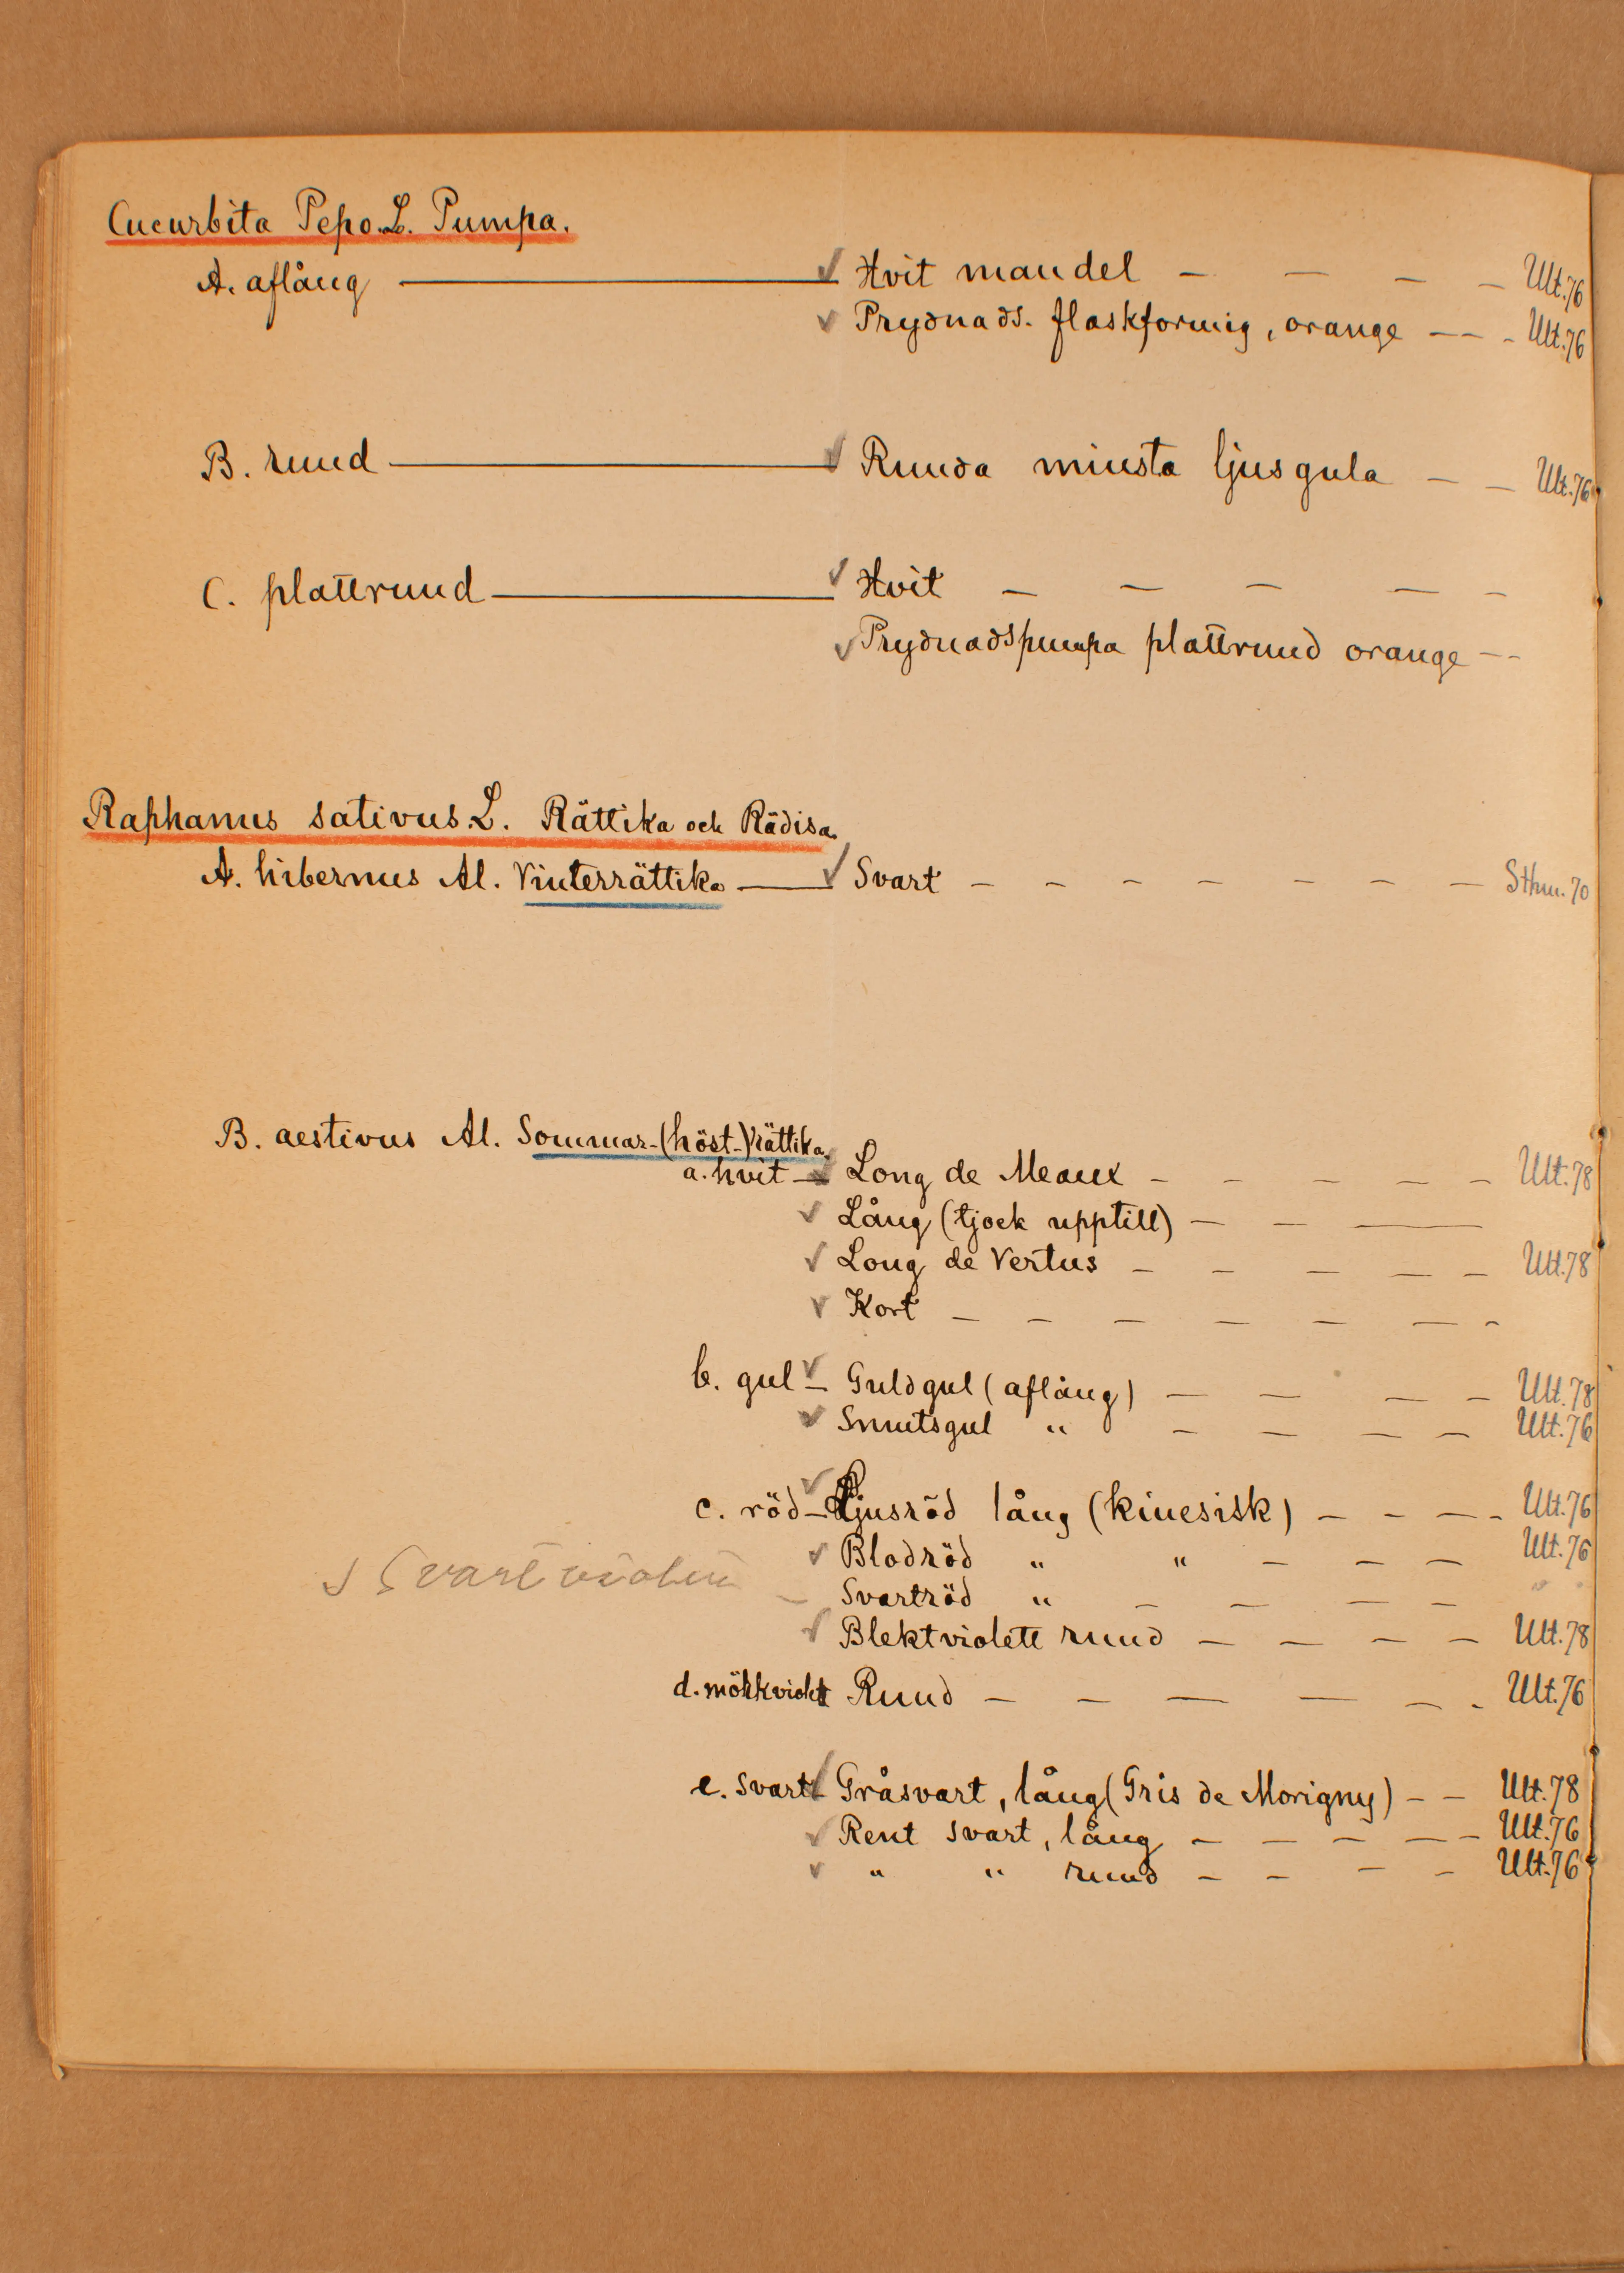 Cucurbita Pepo. L. Pumpa.
A. aflång — ✓ Hvit mandel — — — — Ult. 76
✓ Prydnads. flaskformig, orange — — - Ult. 76
B. rund — ✓ Runda minsta ljusgula — — Ult. 76
C. plattrund — ✓ Hvit — — — — -
✓ Prydnadspumpa plattrund orange - -
Raphanus sativus L. Rättika och Rädisa.
A. hibernus Al. Vinterrättika — ✓ Svart — — — — — — — Sthm. 70
B. aestivus Al. Sommar-(höst-)rättika.
a. hvit — ✓ Long de Meaux — — — — — Ult. 78
✓ Lång (tjock upptill) — — —
✓ Long de Vertus — — — — — Ult. 78
✓ Kort — — — — — — -
b. gul ✓ — Guldgul (aflång) — — — — Ult. 78
✓ Smutsgul " — — — — Ult. 76
c. röd — ✓ Ljusröd lång (kinesisk) — — — - Ult. 76
✓ Blodröd " " — — — Ult. 76
✓ Svartviolett — Svartröd " — — — —
✓ Blektviolett rund — — — — Ult. 78
d. mörkviolett Rund — — — — — - Ult. 76
e. svart — ✓ Gråsvart, lång (Gris de Morigny) — — Ult. 78
✓ Rent svart, lång — — — — — Ult. 76
✓ " " rund — — — — Ult. 76